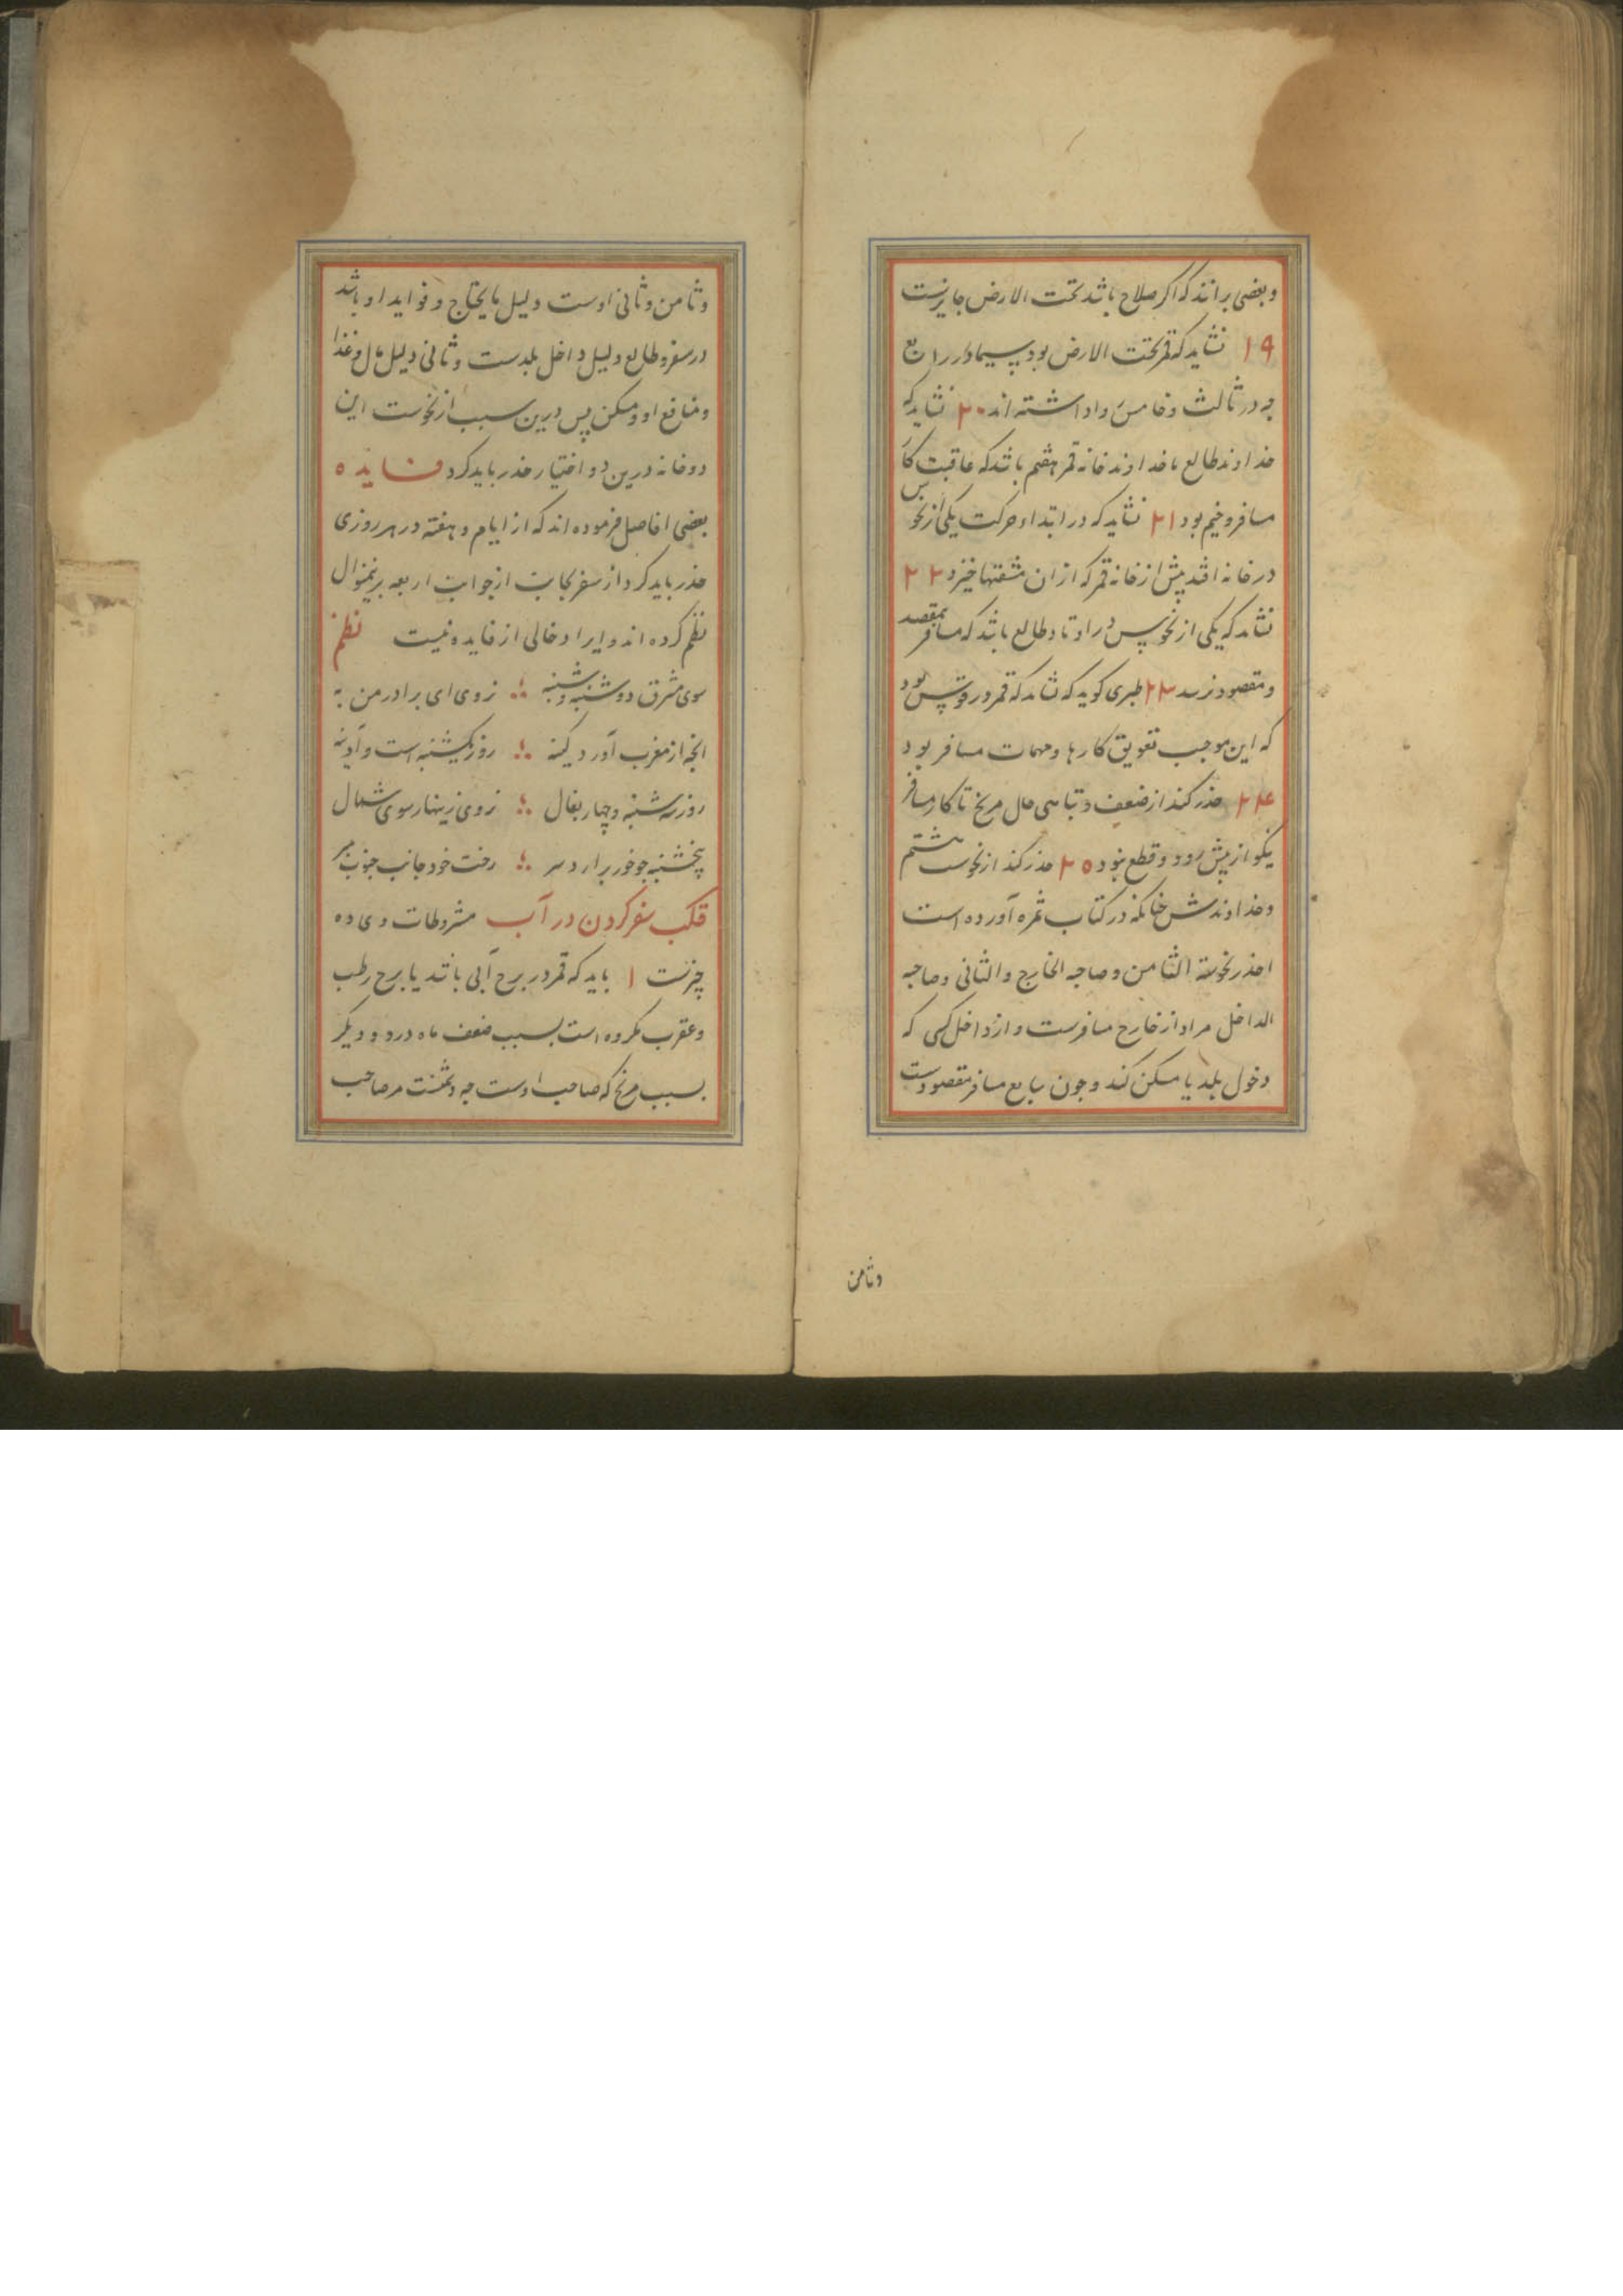 و بعضی برانند که اکر صلاح باشد تحت الارض جایزست
۱۹ نشاید که قمر تحت الارض بود سیما در رابع
چه در ثالث و خامس روا داشته اند ۲۰ نشاید که
خداوند طالع با خداوند خانه قمر هفتم باشد که عاقبت کار
مسافر وخیم بود ۲۱ نشاید که در ابتداء حرکت یکی از نحوس
در خانه افتد پیش از خانه قمر که از ان مشقتها خیزد ۲۲
نشاید که یکی از نحوس در اوتاد طالع باشد که مسافر بمقصد
و مقصود نرسد ۲۳ طبری کوید که نشاید که قمر در قوس بود
که این موجب تعویق کارها و مهمات مسافر بود
۲۴ حذر کند از ضعف و تباهی حال مریخ تا کار مسافر
نیکو از پیش رود و قطع نبود ۲۵ حذر کند از نحوست هشتم
و خداوندش چنانکه در کتاب ثمره آورده است
احذر نحوسة الثامن و صاحبه الخارج و الثانی و صاحبه
الداخل مراد از خارج مسافرست و از داخل کسی که
دخول بلد یا مسکن کند و چون سابع مسافر مقصودست
و ثامن
و ثامن و ثانی اوست دلیل مایحتاج و فواید او باشد
در سفر و طالع دلیل داخل بلدست و ثانی دلیل مال و غذا
و منافع او و مسکن پس درین سبب از نحوست این
دو خانه درین دو اختیار حذر باید کرد فایده
بعضی افاضل فرموده اند که از ایام هفته در هر روزی
حذر باید کرد از سفر بجانب از جوانب اربعه برینمنوال
نظم کرده اند و ایراد خالی از فایده نیست نظم
سوی مشرق دوشنبه و شنبه ؛ نروی ای برادر من به
انچه از مغرب آورد کینه ؛ روز یکشنبه است و آدینه
روز سه شنبه و چهار بفال ؛ نروی زینهار سوی شمال
پنجشنبه چو خور برارد سر ؛ رخت خود جانب جنوب مبر
فلک سفر کردن در آب مشروطات وی ده
چیزست ۱ باید که قمر در برج آبی باشد یا برج رطب
و عقرب مکروه است بسبب ضعف ماه درو و دیگر
بسبب مریخ که صاحب اوست چه دشمنست مر صاحب